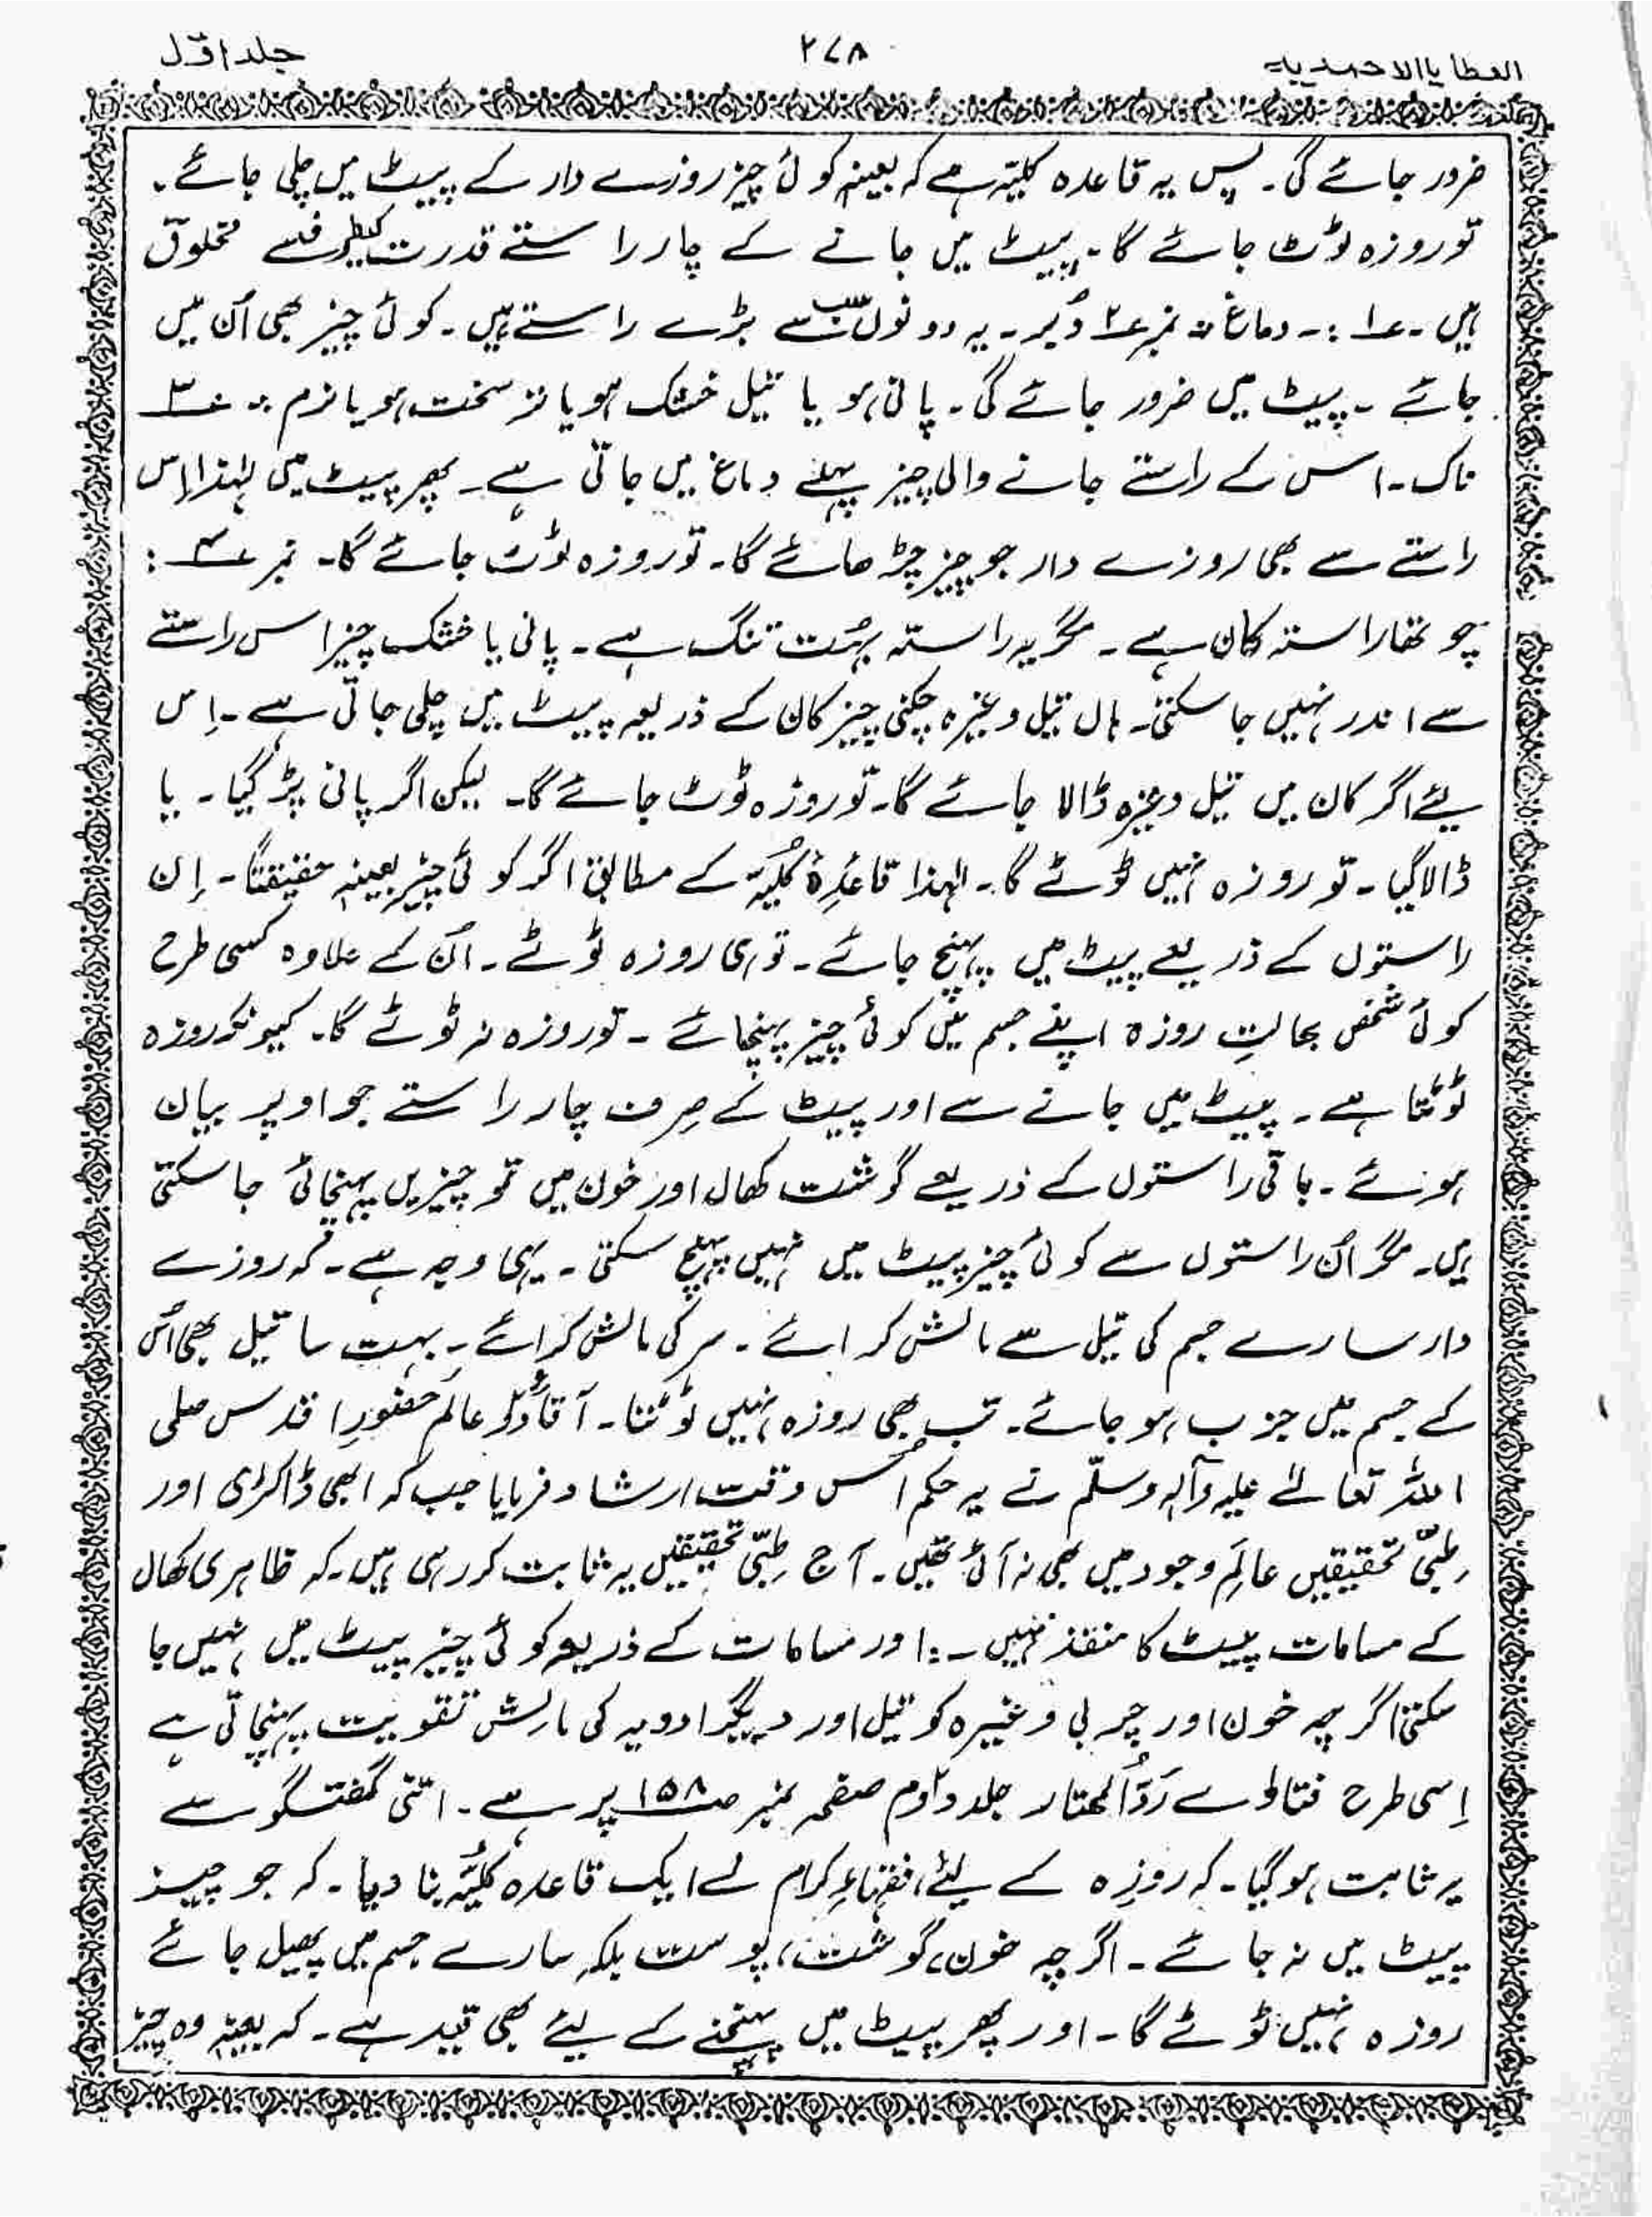 العطایا الاحمدیہ ۲۷۸ جلد اوّل
ضرور جائے گی۔ پس یہ قاعدہ کلیّہ ہے کہ بعینہٖ کوئی چیز روزے دار کے پیٹ میں چلی جائے۔
تو روزہ ٹوٹ جائے گا۔ پیٹ میں جانے کے چار راستے قدرت کیطرف سے مخلوق
ہیں۔ ۱؎ :۔ دماغ ؞ نمبر ۲؎ دُبر۔ یہ دونوں سب سے بڑے راستے ہیں۔ کوئی چیز بھی اُن میں
جائے۔ پیٹ میں ضرور جائے گی۔ پانی ہو یا تیل خشک ہو یا تر سخت ہو یا نرم ؞ ۳؎
ناک۔ اس کے راستے جانے والی چیز پہلے دماغ میں جاتی ہے۔ پھر پیٹ میں لہٰذا اِس
راستے سے بھی روزے دار جو چیز چڑھائے گا۔ تو روزہ ٹوٹ جائے گا۔ نمبر ۴؎ :
چوتھا راستہ کان ہے۔ مگر یہ راستہ بہُت تنگ ہے۔ پانی یا خشک چیز اس راستے
سے اندر نہیں جا سکتی۔ ہاں تیل وغیرہ چکنی چیز کان کے ذریعہ پیٹ میں چلی جاتی ہے۔ اِس
لیئے اگر کان میں تیل وغیرہ ڈالا جائے گا۔ تو روزہ ٹوٹ جائے گا۔ لیکن اگر پانی پڑ گیا۔ یا
ڈالا گیا۔ تو روزہ نہیں ٹوٹے گا۔ لہٰذا قاعدۂ کُلیّہ کے مطابق اگر کوئی چیز بعینہٖ حقیقتًا۔ اِن
راستوں کے ذریعے پیٹ میں پہنچ جائے۔ تو ہی روزہ ٹوٹے۔ اُن کے علاوہ کسی طرح
کوئی شخص بحالتِ روزہ اپنے جسم میں کوئی چیز پہنچائے۔ تو روزہ نہ ٹوٹے گا۔ کیونکہ روزہ
ٹوٹتا ہے۔ پیٹ میں جانے سے اور پیٹ کے صِرف چار راستے جو اوپر بیان
ہوئے۔ باقی راستوں کے ذریعے گوشت کھال اور خون میں تو چیزیں پہنچائی جا سکتی
ہیں۔ مگر اُن راستوں سے کوئی چیز پیٹ میں نہیں پہنچ سکتی۔ یہی وجہ ہے۔ کہ روزے
دار سارے جسم کی تیل سے مالش کرائے۔ سر کی مالش کرائے۔ بہت سا تیل بھی اُس
کے جسم میں جزب ہو جائے۔ تب بھی روزہ نہیں ٹوٹتا۔ آقاءِ دو عالم حضورِ اقدس صلی
اللہُ تعالےٰ علیہ وآلہٖ وسلّم نے یہ حکم اُس وقت ارشاد فرمایا جب کہ ابھی ڈاکٹری اور
طِبّی تحقیقیں عالَمِ وجود میں بھی نہ آئی تھیں۔ آج طِبّی تحقیقیں یہ ثابت کر رہی ہیں۔ کہ ظاہری کھال
کے مسامات پیٹ کا منفذ نہیں۔: اور مسامات کے ذریعہ کوئی چیز پیٹ میں نہیں جا
سکتی اگرچہ خون اور چربی وغیرہ کو تیل اور دیگر ادویہ کی مالِش تقویت پہنچاتی ہے
اِسی طرح فتاوٰے رَدُّالمحتار جلد دوم صفحہ نمبر ص۱۵۸ پر ہے۔ اتنی گفتگو سے
یہ ثابت ہو گیا۔ کہ روزہ کے لیئے فقہاءِ کرام نے ایک قاعدہ کُلیّہ بنا دیا۔ کہ جو چیز
پیٹ میں نہ جائے۔ اگرچہ خون، گوشت، پوست بلکہ سارے جسم میں پھیل جائے
روزہ نہیں ٹوٹے گا۔ اور پھر پیٹ میں پہنچنے کے لیئے بھی قید ہے۔ کہ بعینہٖ وہ چیز